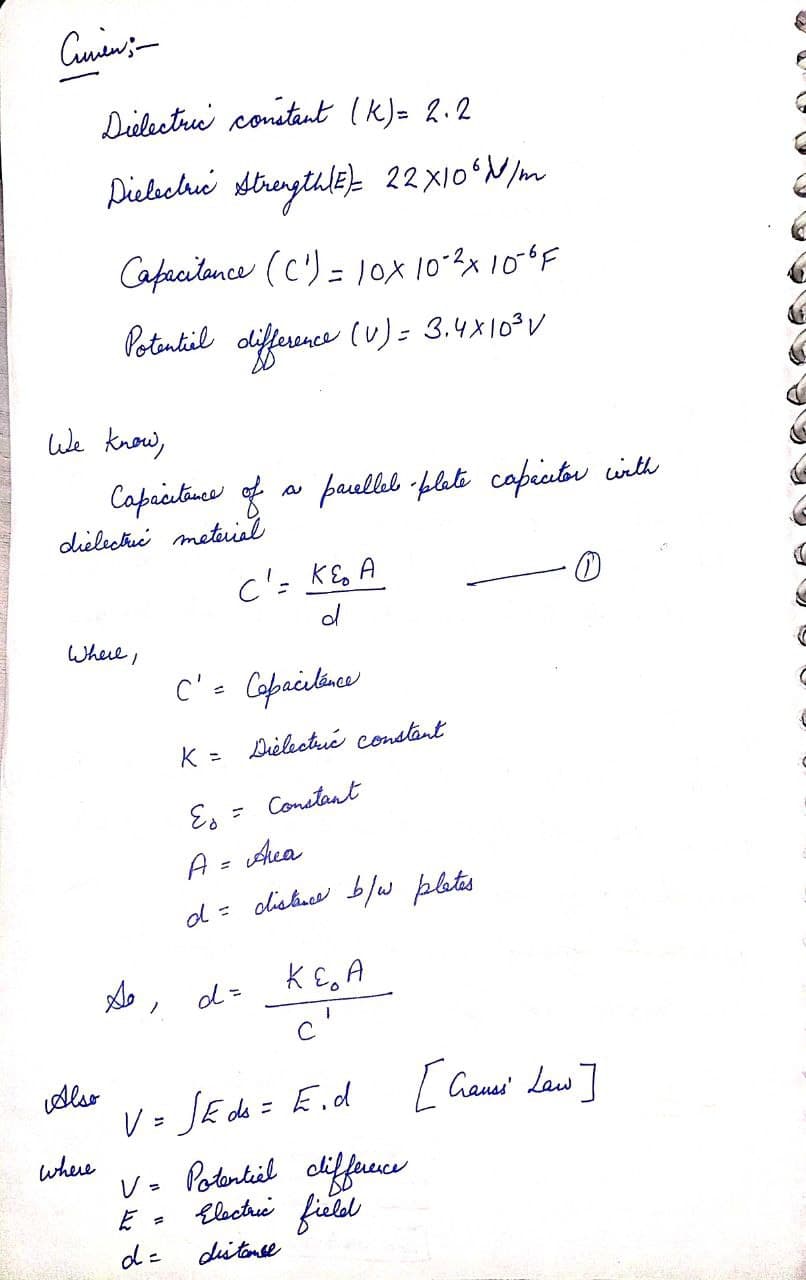 Given:-
Dielectric constant (K)= 2.2
Dielectric Strength(E)= 22X10⁶ V/m
Capacitance (C') = 10X 10⁻²x 10⁻⁶F
Potential difference (V) = 3.4X10³V
We know,
Capacitance of a parellel-plate capacitor with
dielectric material
C' = Kε₀A / d —— ①
Where,
C' = Capacitance
K = Dielectric constant
ε₀ = Constant
A = Area
d = distance b/w plates
So, d = Kε₀A / C'
Also V = ∫E ds = E.d [Gauss' Law]
where
V = Potential difference
E = Electric field
d = distance